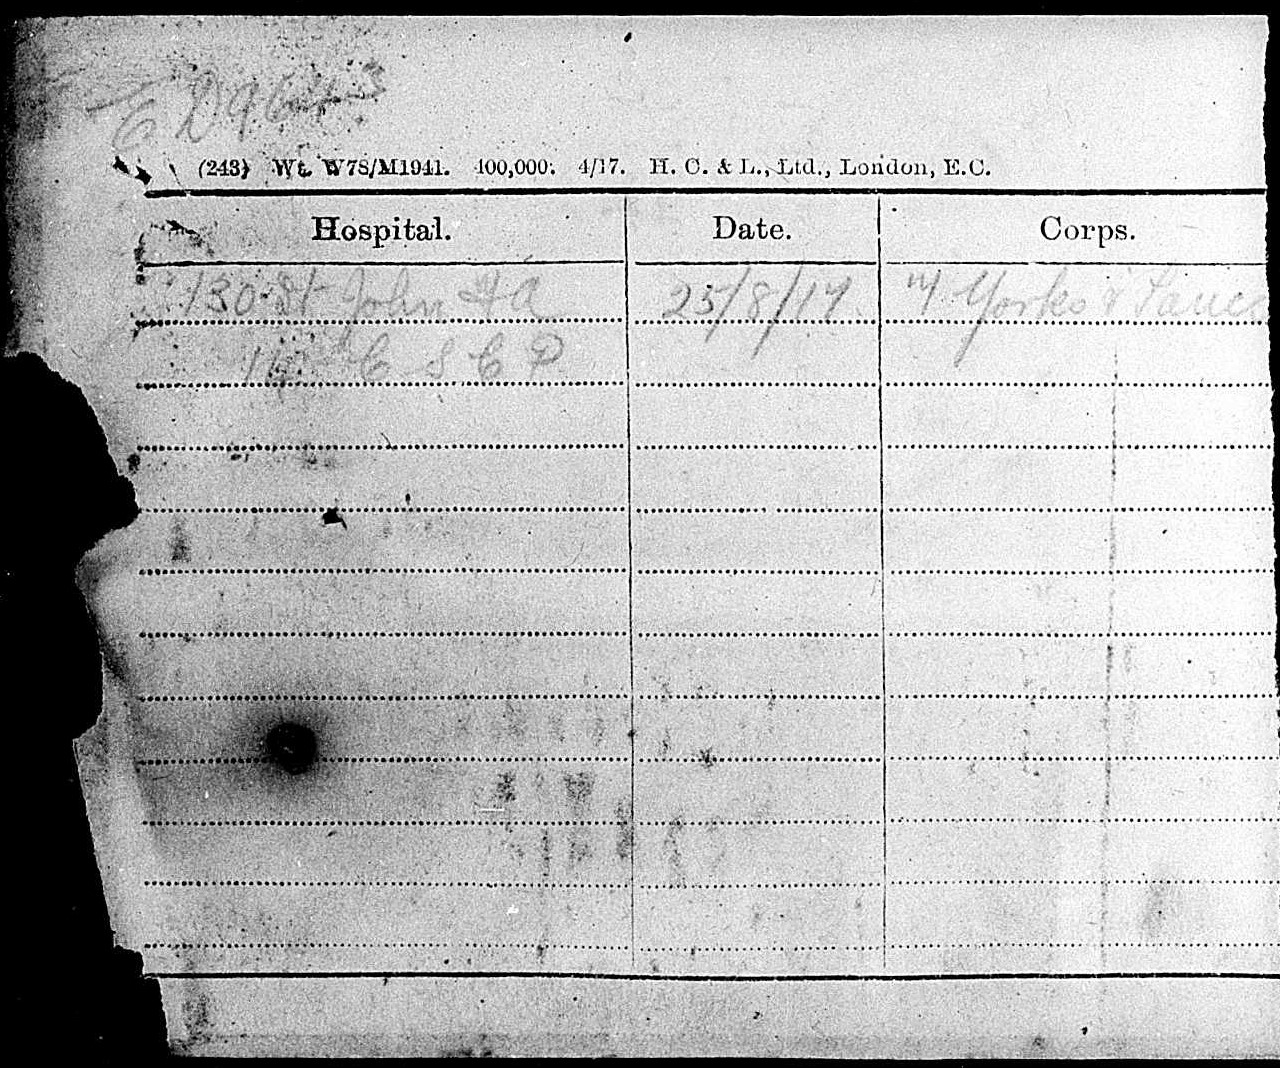 E D9643
(243) Wt. W78/M1941. 400,000. 4/17. H. C. & L., Ltd., London, E.C.
Hospital. Date. Corps.
130 St John FA 25/8/17 Yorks & Lancs
C S C P